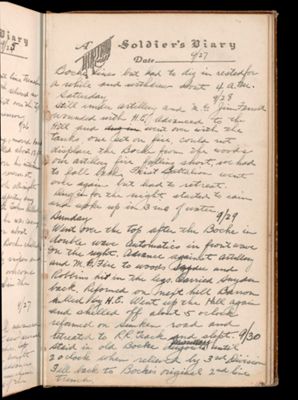 A Soldier's Diary
Date 9/27
Boche lines but had to dig in rested for
a while and withdrew about 4 a.m.
Saturday 9/28
Still under artillery and M.G. Jim Farrell
wounded with H.E. Advanced to the
Hill and went over with the
tanks one led on fire could not
displace the Boche from the woods
our artillery fire falling short, we had
to fall back. First Batalion went
over again but had to retreat.
dug in for the night started to rain
and woke up in 3 in. of water
Sunday 9/29
Went over the top after the Boche in
double wave Automatics in front wave
on the right. Advance against artillery
and M.G. Fire to woods Snyder and
Robbins hit in the legs. Carried Snyder
back. Reformed on next hill Barron
killed by H.E. Went up the Hill again
and shelled off about 5 oclock
reformed on sunken road and
retreated to R.R. track and slept. 9/30
Monday
Staid in old Boche dugouts until
2 oclock when relieved by 3rd Division
Fell back to Boche original 2nd line
trench